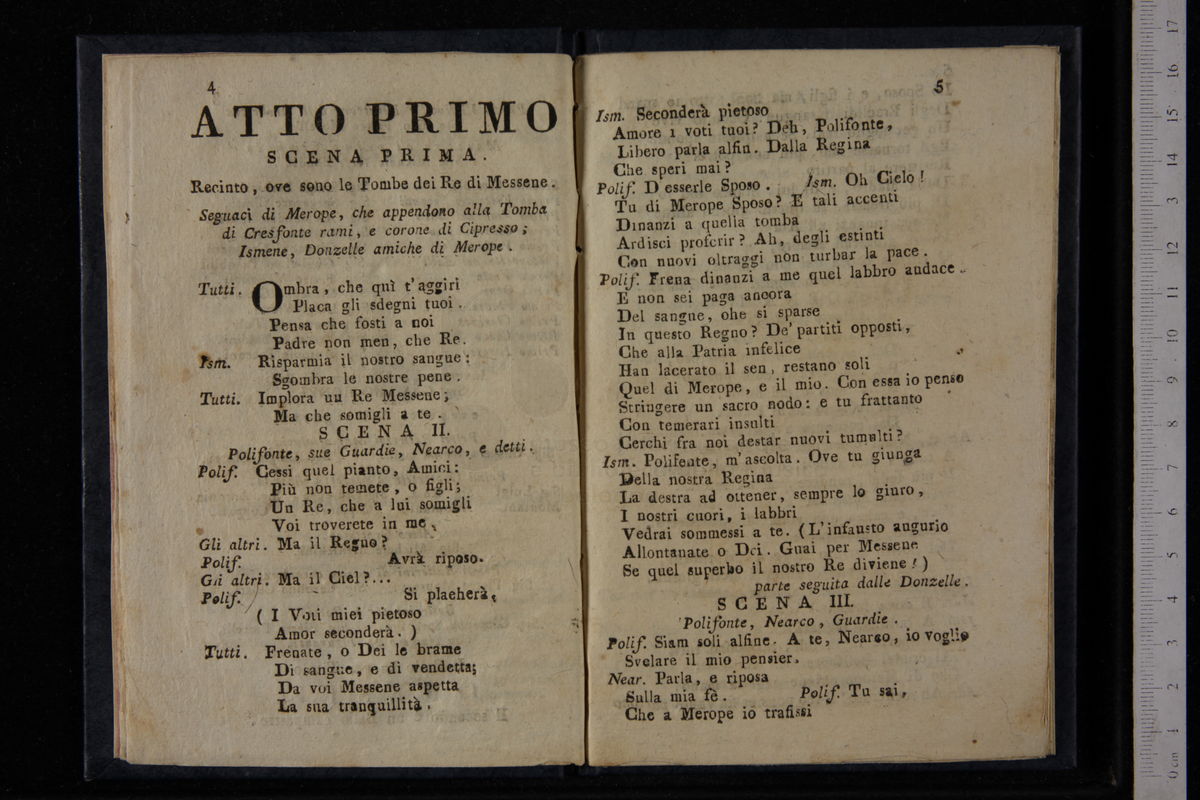 4
ATTO PRIMO
SCENA PRIMA.
Recinto, ove sono le Tombe dei Re di Messene.
Seguaci di Merope, che appendono alla Tomba
di Cresfonte rami, e corone di Cipresso;
Ismene, Donzelle amiche di Merope.
Tutti. Ombra, che quì t'aggiri
Placa gli sdegni tuoi.
Pensa che fosti a noi
Padre non men, che Re.
Ism. Risparmia il nostro sangue:
Sgombra le nostre pene.
Tutti. Implora un Re Messene;
Ma che somigli a te.
SCENA II.
Polifonte, sue Guardie, Nearco, e detti.
Polif. Cessi quel pianto, Amici:
Più non temete, o figli;
Un Re, che a lui somigli
Voi troverete in me.
Gli altri. Ma il Regno?
Polif. Avrà riposo.
Gli altri. Ma il Ciel?...
Polif. Si plaeherà,
( I Voti miei pietoso
Amor seconderà. )
Tutti. Frenate, o Dei le brame
Di sangue, e di vendetta;
Da voi Messene aspetta
La sua tranquillità.
5
Ism. Seconderà pietoso
Amore i voti tuoi? Deh, Polifonte,
Libero parla alfin. Dalla Regina
Che speri mai?
Polif. D'esserle Sposo. Ism. Oh Cielo!
Tu di Merope Sposo? E tali accenti
Dinanzi a quella tomba
Ardisci proferir? Ah, degli estinti
Con nuovi oltraggi non turbar la pace.
Polif. Frena dinanzi a me quel labbro audace.
E non sei paga ancora
Del sangue, ohe si sparse
In questo Regno? De' partiti opposti,
Che alla Patria infelice
Han lacerato il sen, restano soli
Quel di Merope, e il mio. Con essa io penso
Stringere un sacro nodo: e tu frattanto
Con temerari insulti
Cerchi fra noi destar nuovi tumulti?
Ism. Polifente, m'ascolta. Ove tu giunga
Della nostra Regina
La destra ad ottener, sempre lo giuro,
I nostri cuori, i labbri
Vedrai sommessi a te. (L'infausto augurio
Allontanate o Dei. Guai per Messene
Se quel superbo il nostro Re diviene!)
parte seguita dalle Donzelle.
SCENA III.
Polifonte, Nearco, Guardie.
Polif. Siam soli alfine. A te, Nearco, io voglio
Svelare il mio pensier.
Near. Parla, e riposa
Sulla mia fè. Polif. Tu sai,
Che a Merope io trafissi
0 cm 1 2 3 4 5 6 7 8 9 10 11 12 3 14 15 16 17